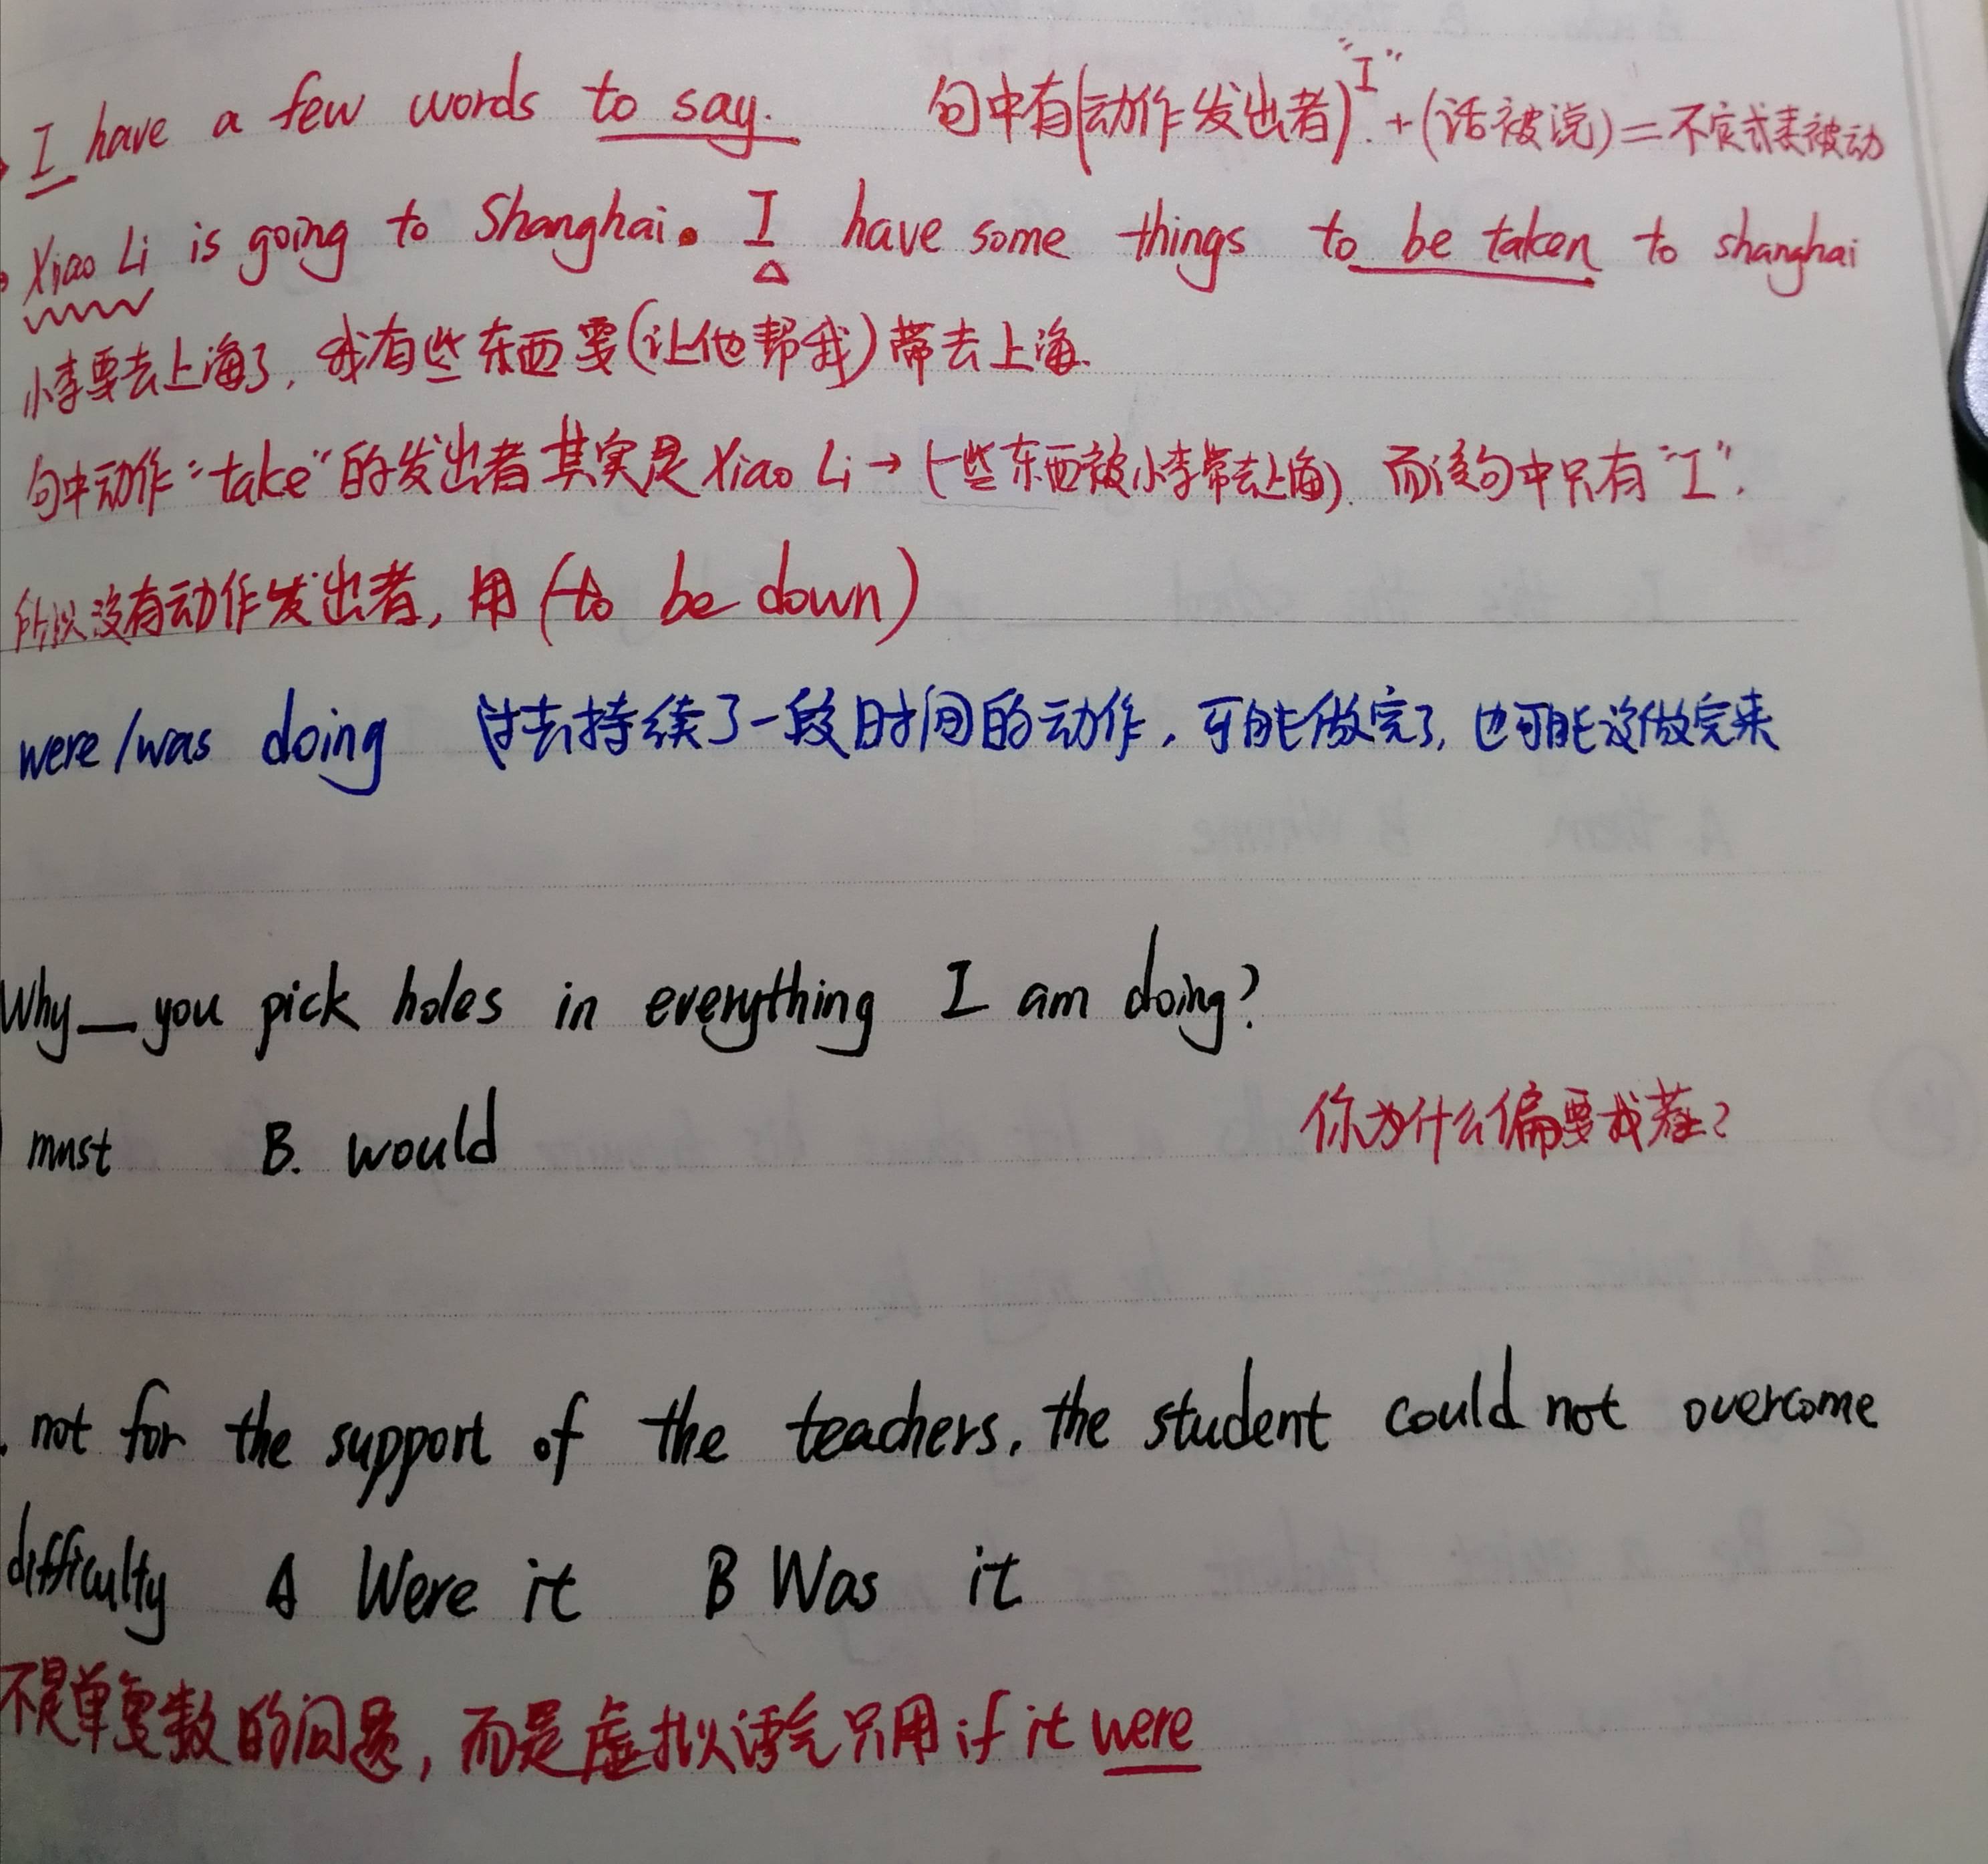 I have a few words to say. 句中有(动作发出者)"I" + (话被说) = 不定式表被动
Xiao Li is going to Shanghai. I have some things to be taken to shanghai
小李要去上海了, 我有些东西要(让他帮我)带去上海.
句中动作"take"的发出者其实是 Xiao Li → (一些东西被小李带去上海). 而该句中只有"I".
所以没有动作发出者, 用 (to be down)
were/was doing 过去持续了一段时间的动作, 可能做完了, 也可能没做完来
Why__you pick holes in everything I am doing?
must B. would 你为什么偏要找茬?
not for the support of the teachers, the student could not overcome
difficulty A Were it B Was it
不是单复数的问题, 而是虚拟语气只用 if it were